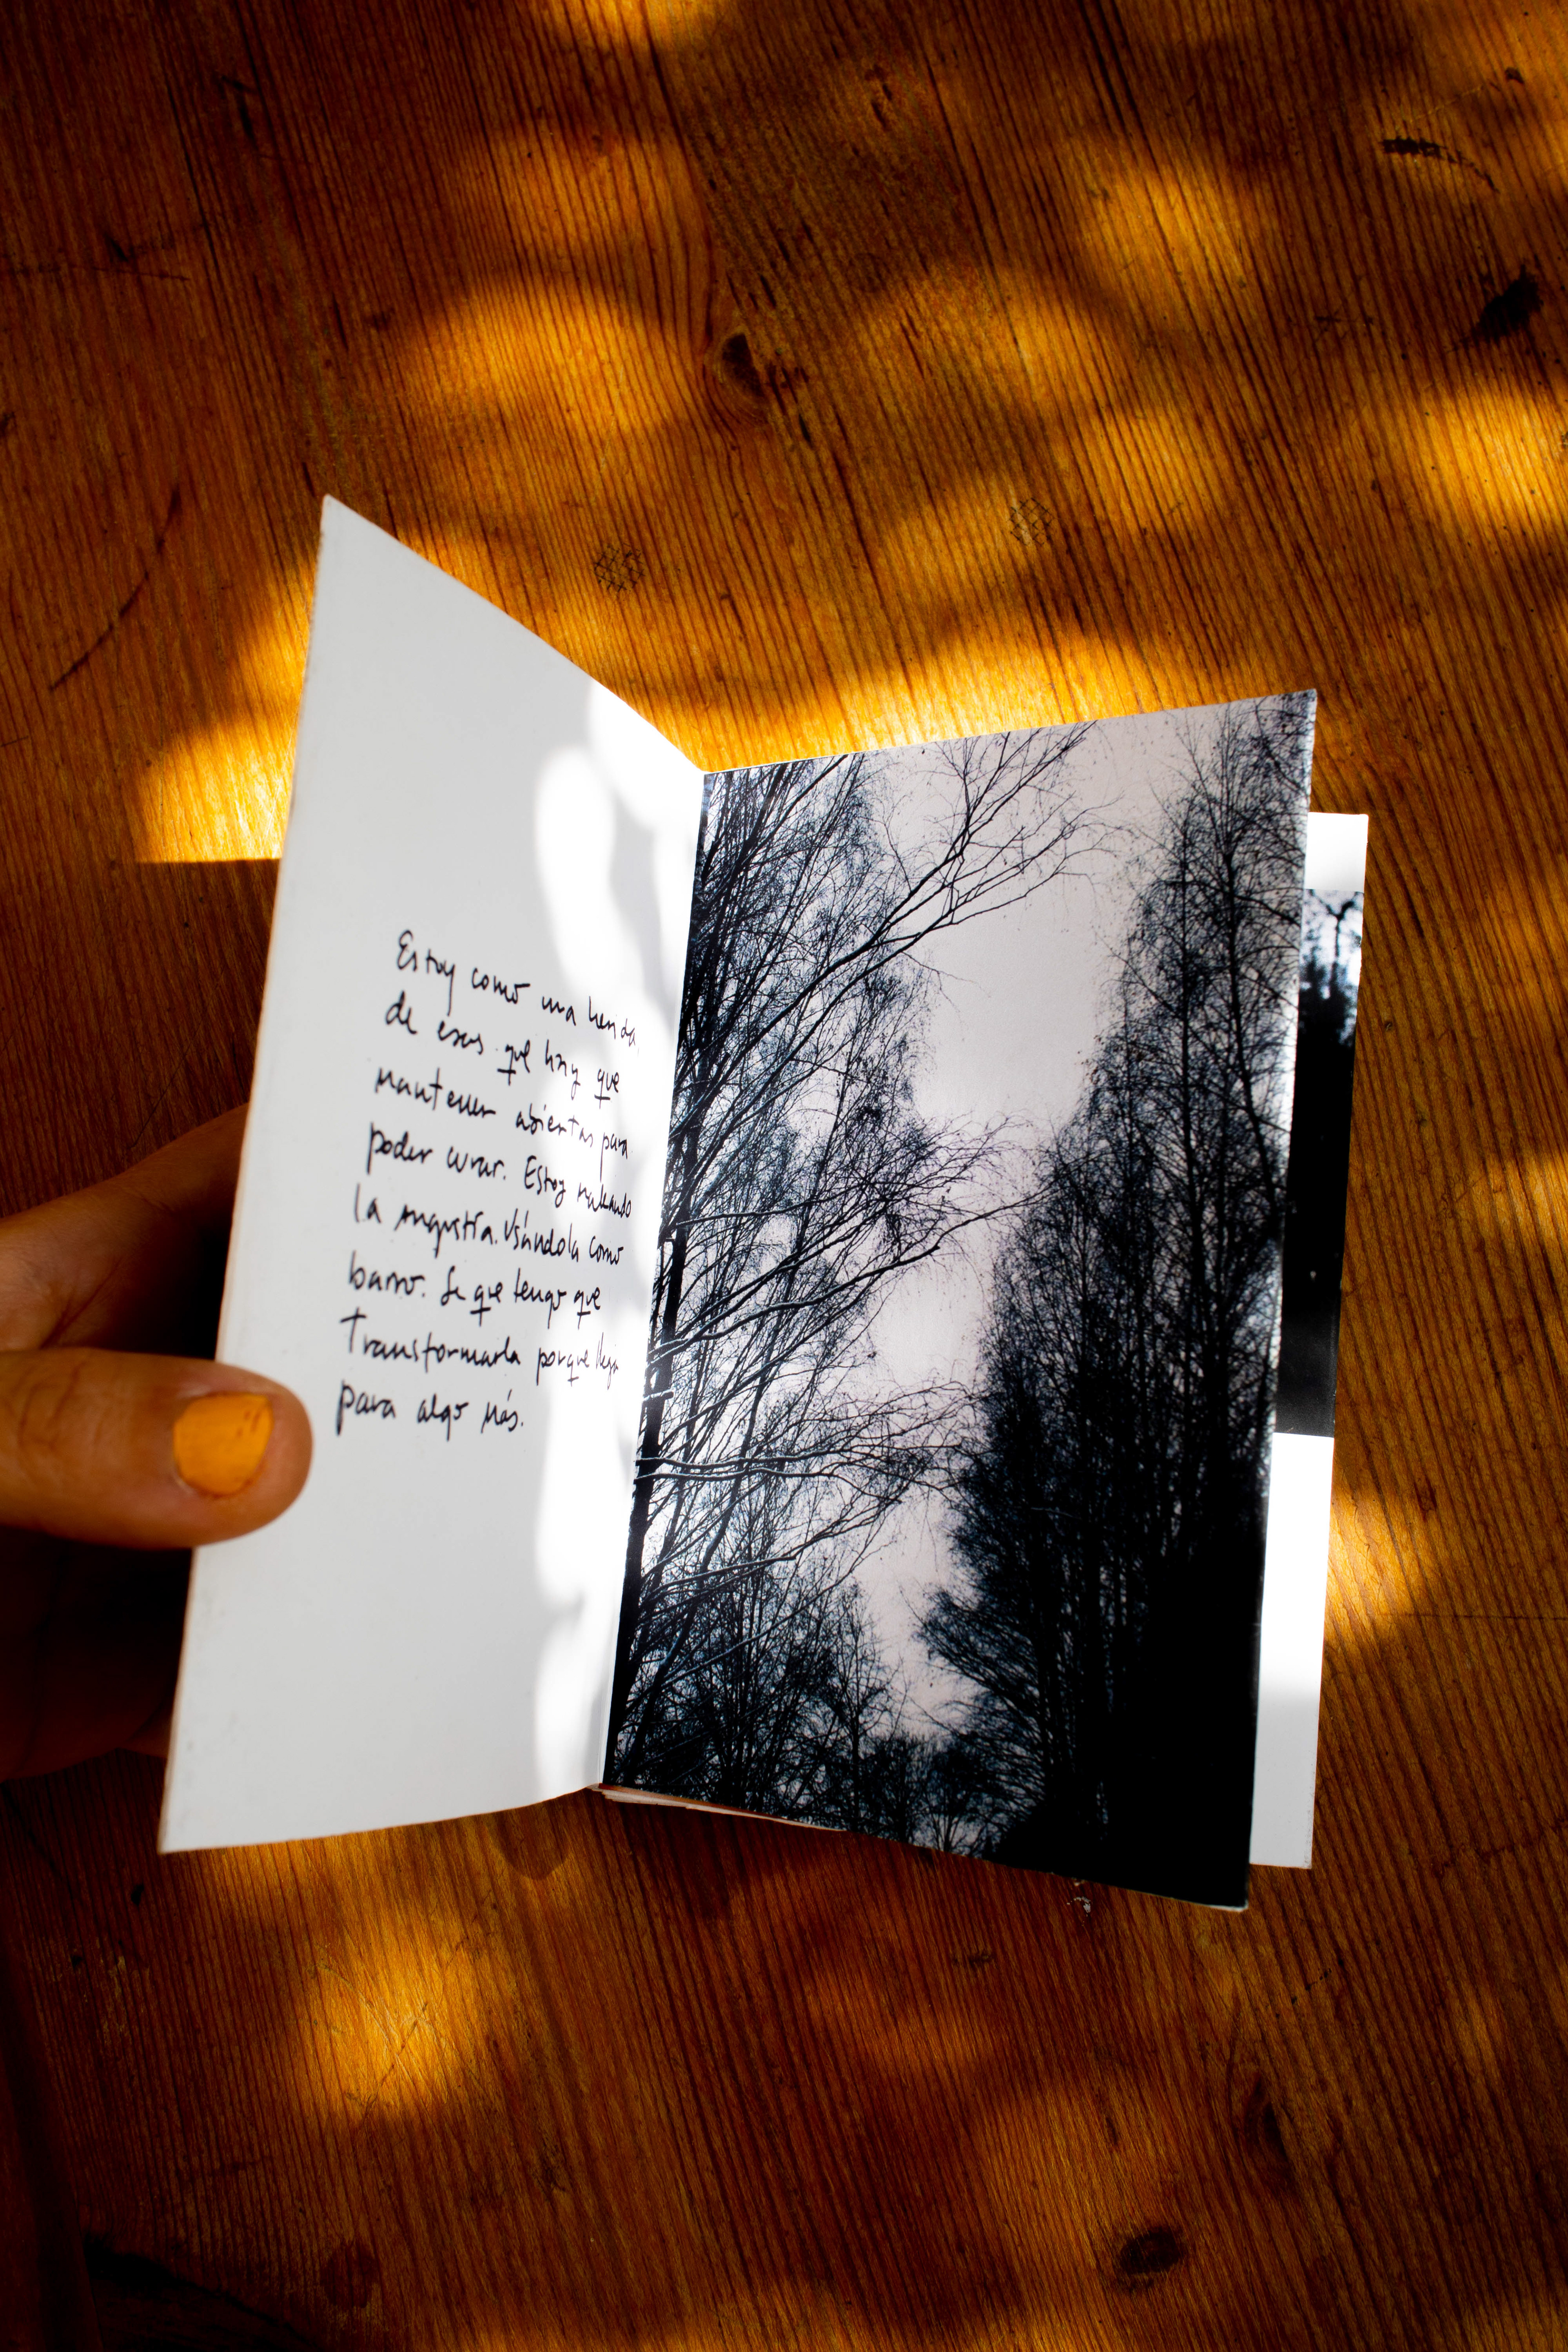 Estoy como una herida
de esas que hay que
mantener abiertas para
poder curar. Estoy
la angustia. Usándola como
barro. Se que tengo que
Transformarla porque
para algo más.